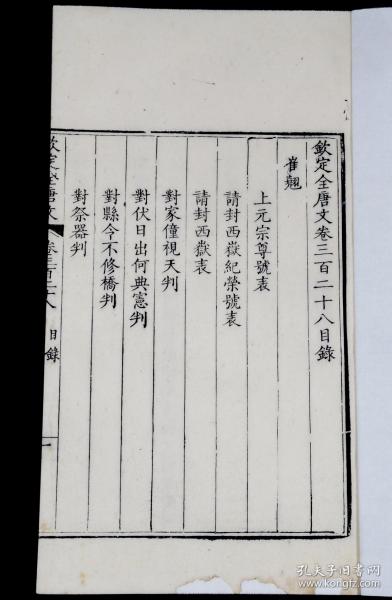 欽定全唐文卷三百二十八目錄
崔翹
上元宗尊號表
請封西嶽紀榮號表
請封西嶽表
對家僮視天判
對伏日出何典憲判
對縣令不修橋判
對祭器判
欽定全唐文
卷三百二十八
目錄
一
孔夫子旧书网